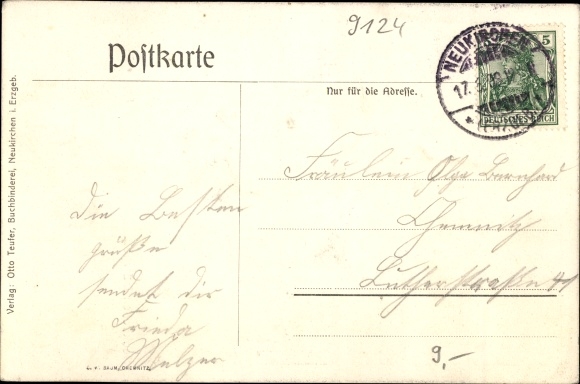 9124
Postkarte
Nur für die Adresse.
NEUKIRCHEN
17.
5
DEUTSCHES REICH
(ERZGEB.)
Fräulein Olga Bernhard
Chemnitz
Lutherstraße 41
Die Besten
grüße
sendet dir
Frieda
Melzer
9,-
Verlag: Otto Teufer, Buchbinderei, Neukirchen i. Erzgeb.
BAUM, CHEMNITZ